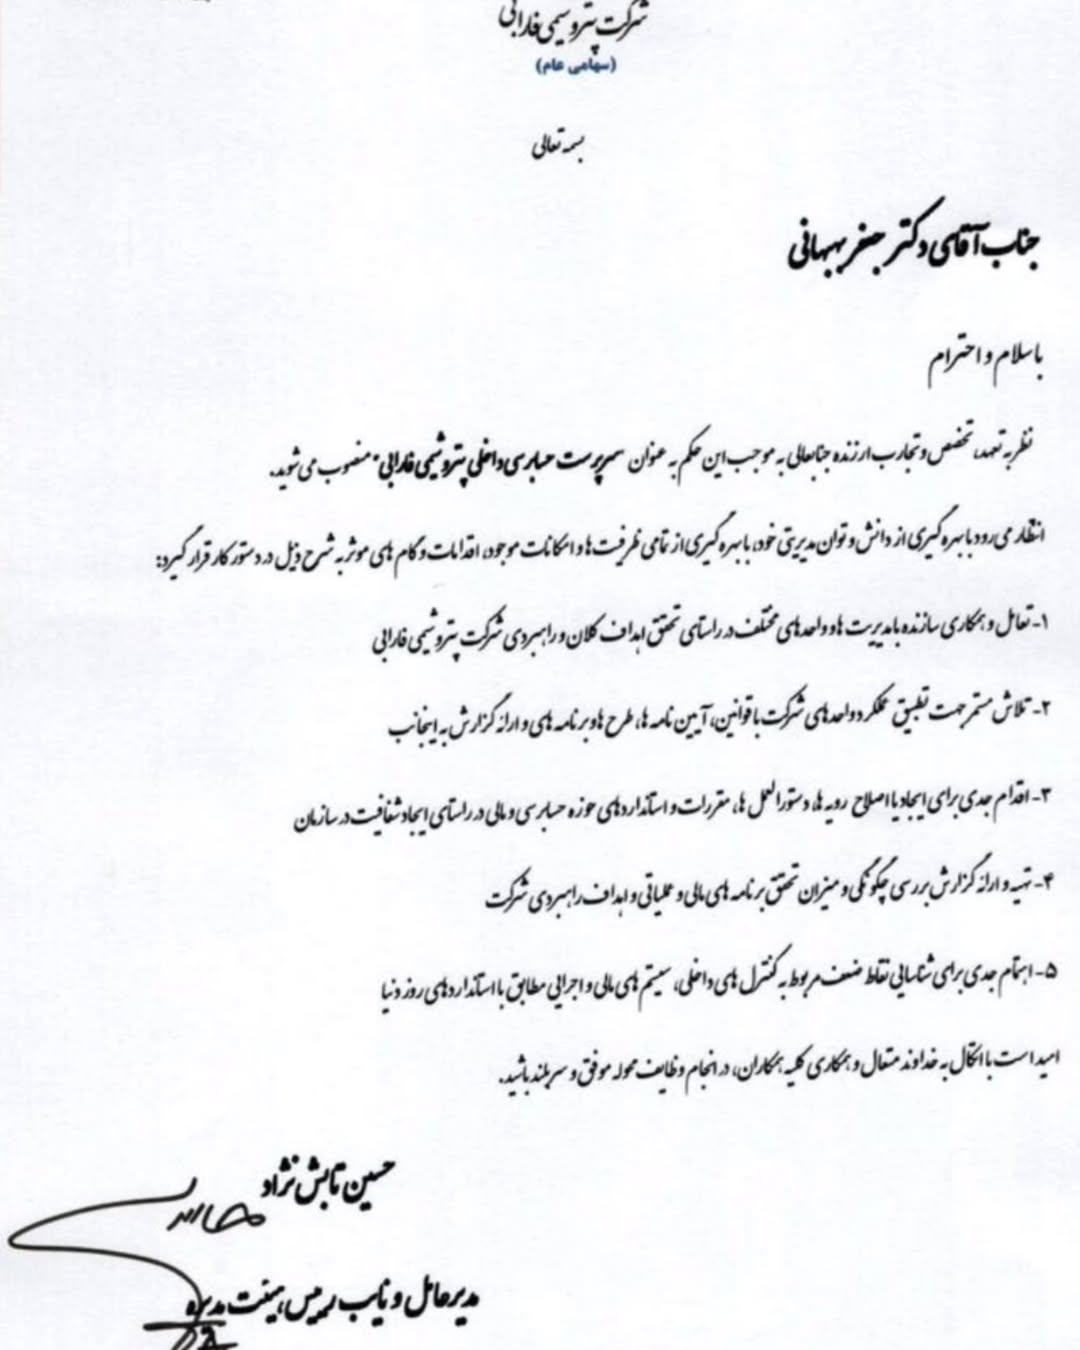 شرکت پتروشیمی فارابی
(سهامی عام)
بسمه تعالی
جناب آقای دکتر جعفر بهبهانی
با سلام و احترام
نظر به تعهد، تخصص و تجارب ارزنده جنابعالی به موجب این حکم به عنوان سرپرست حسابرسی داخلی پتروشیمی فارابی" منصوب می شوید.
انتظار می رود با بهره گیری از دانش و توان مدیریتی خود، با بهره گیری از تمامی ظرفیت ها و امکانات موجود، اقدامات و گام های موثر به شرح ذیل در دستور کار قرار گیرد:
۱- تعامل و همکاری سازنده با مدیریت ها و واحدهای مختلف در راستای تحقق اهداف کلان و راهبردی شرکت پتروشیمی فارابی
۲- تلاش مستمر جهت تطبیق عملکرد واحدهای شرکت با قوانین، آیین نامه ها، طرح ها و برنامه های و ارائه گزارش به اینجانب
۳- اقدام جدی برای ایجاد یا اصلاح رویه ها، دستورالعمل ها، مقررات و استانداردهای حوزه حسابرسی و مالی در راستای ایجاد شفافیت در سازمان
۴- تهیه و ارائه گزارش بررسی چگونگی و میزان تحقق برنامه های مالی و عملیاتی و اهداف راهبردی شرکت
۵- اهتمام جدی برای شناسایی نقاط ضعف مربوط به کنترل های داخلی، سیستم های مالی و اجرایی مطابق با استانداردهای روز دنیا
امید است با اتکال به خداوند متعال و همکاری کلیه همکاران، در انجام وظایف محوله موفق و سربلند باشید.
حسین تابش نژاد
مدیرعامل و نایب رییس هیئت مدیره